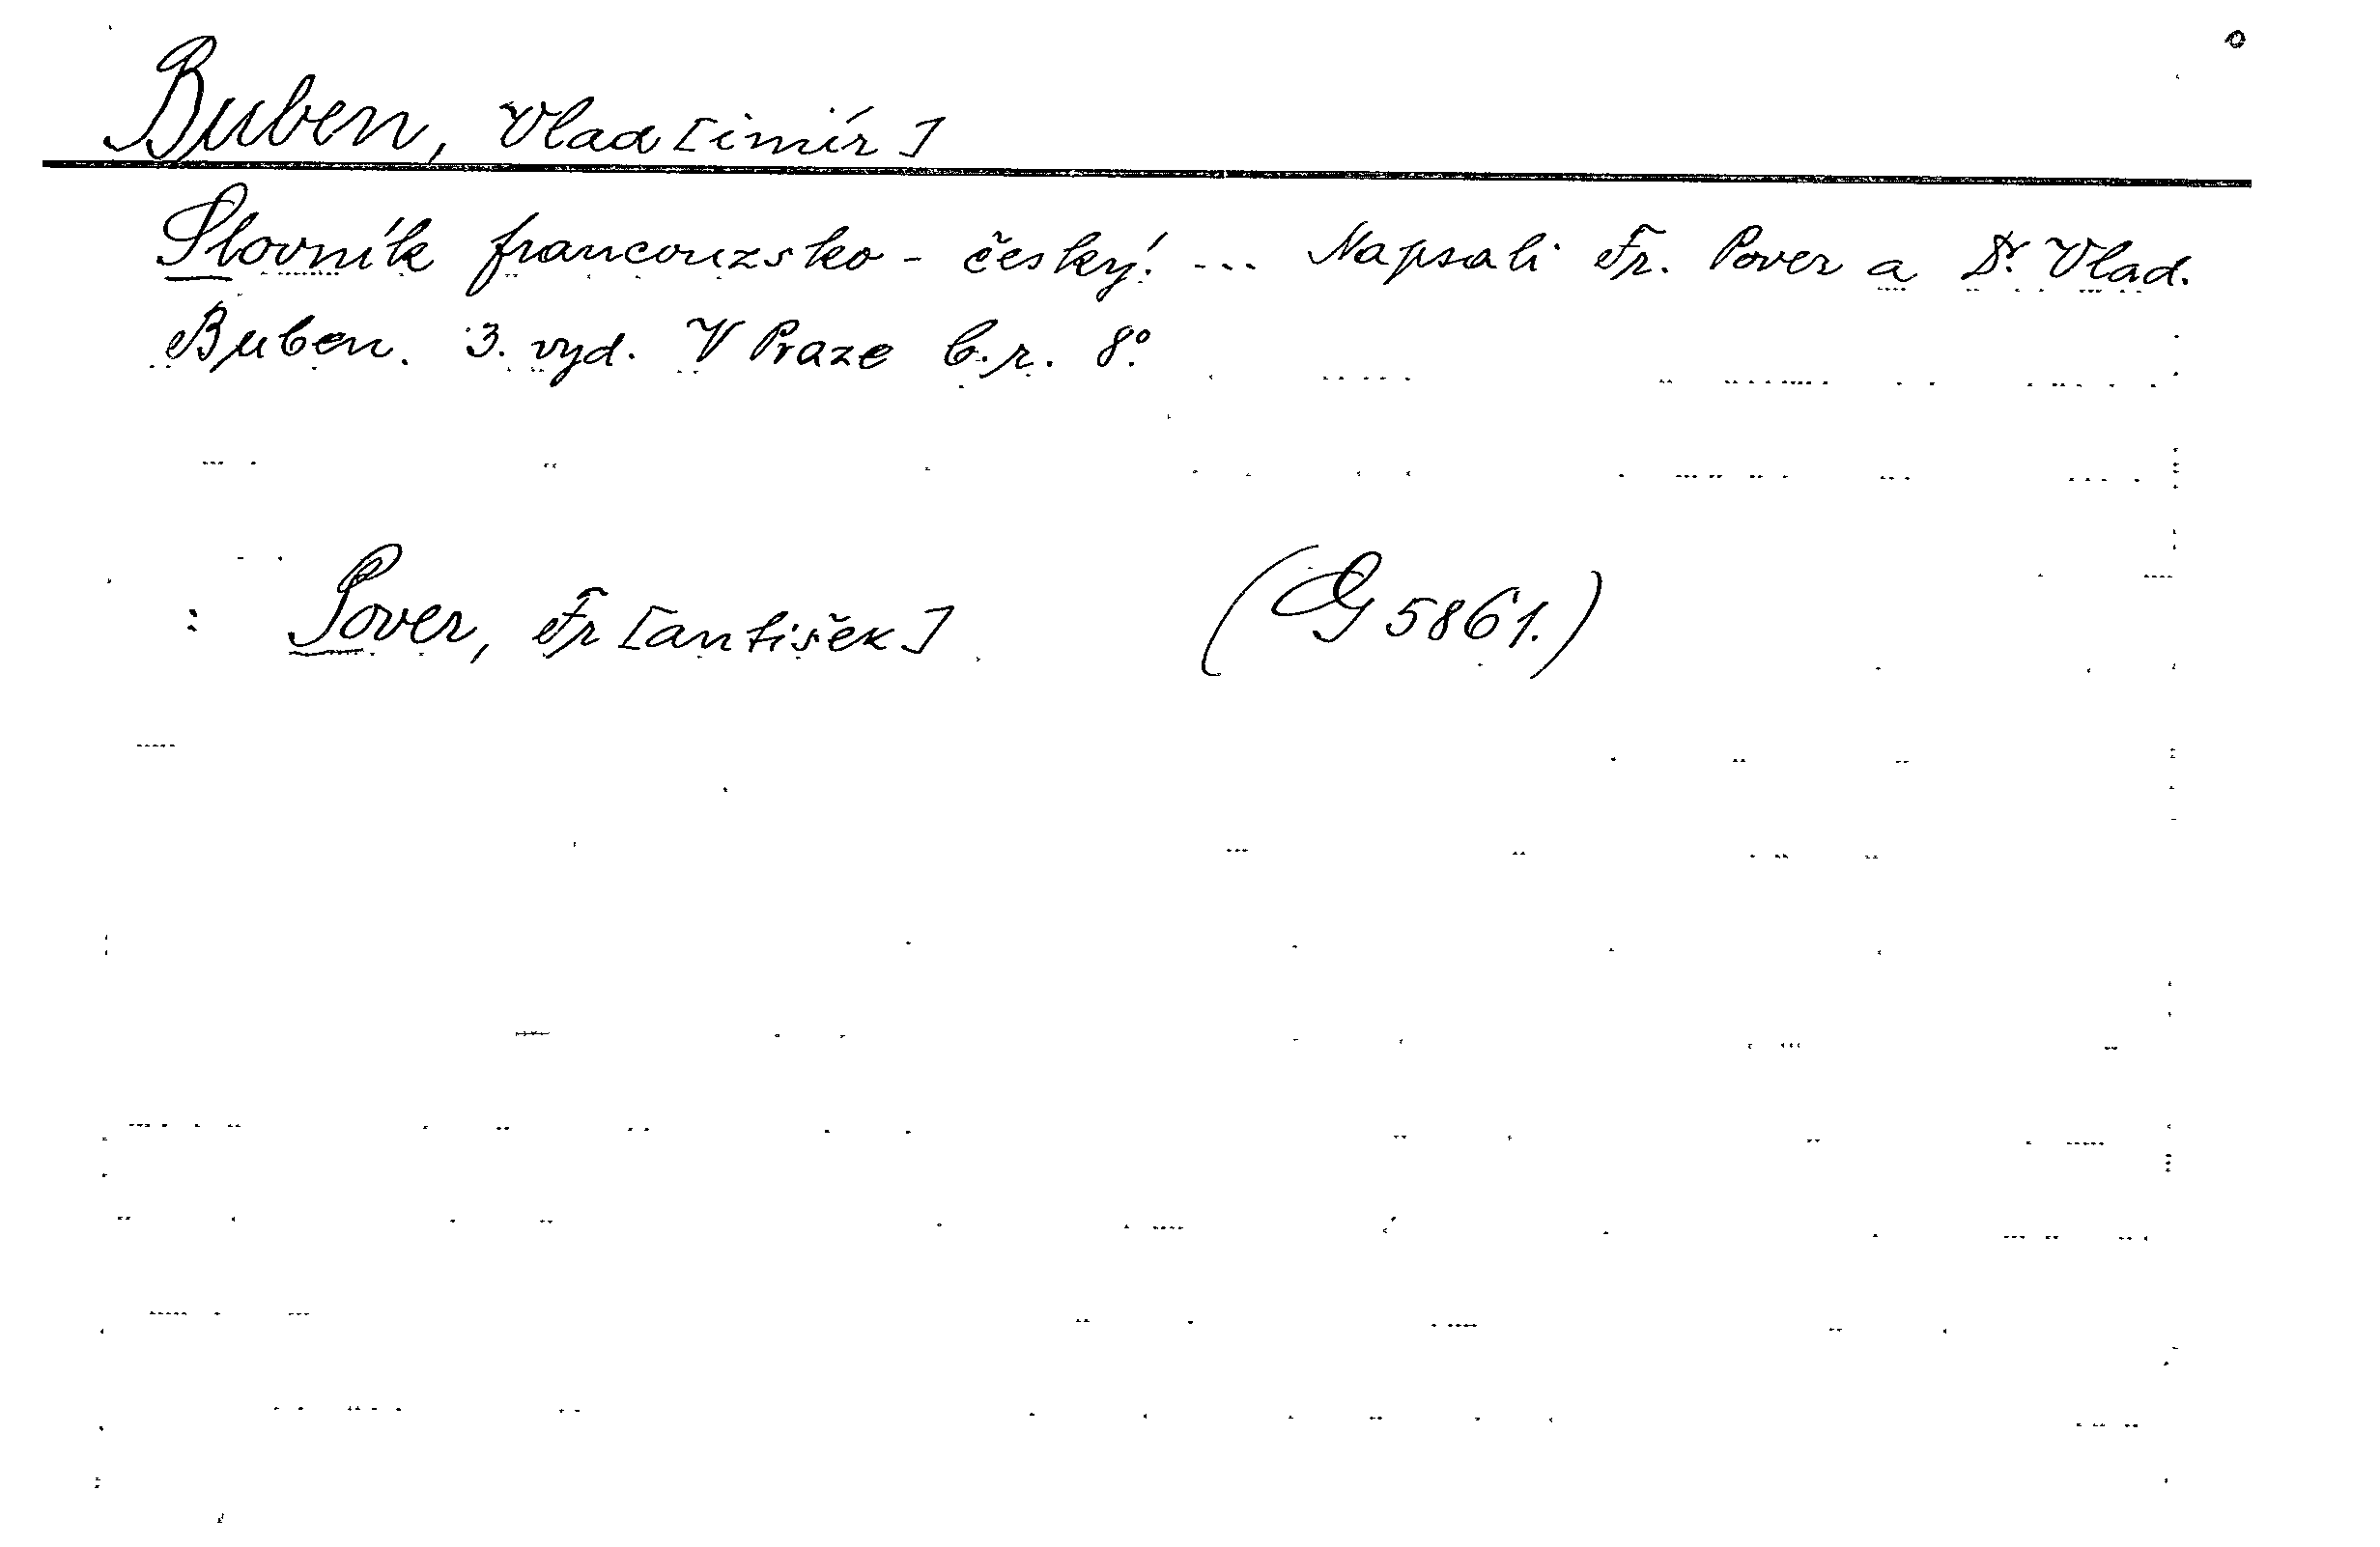 Buben, Vlad[imír]
Slovník francouzsko-český. ... Napsali Fr. Pover a Dr. Vlad.
Buben. 3. vyd. V Praze b.r. 8°.
: Pover, Fr[antišek] (G 5861.)